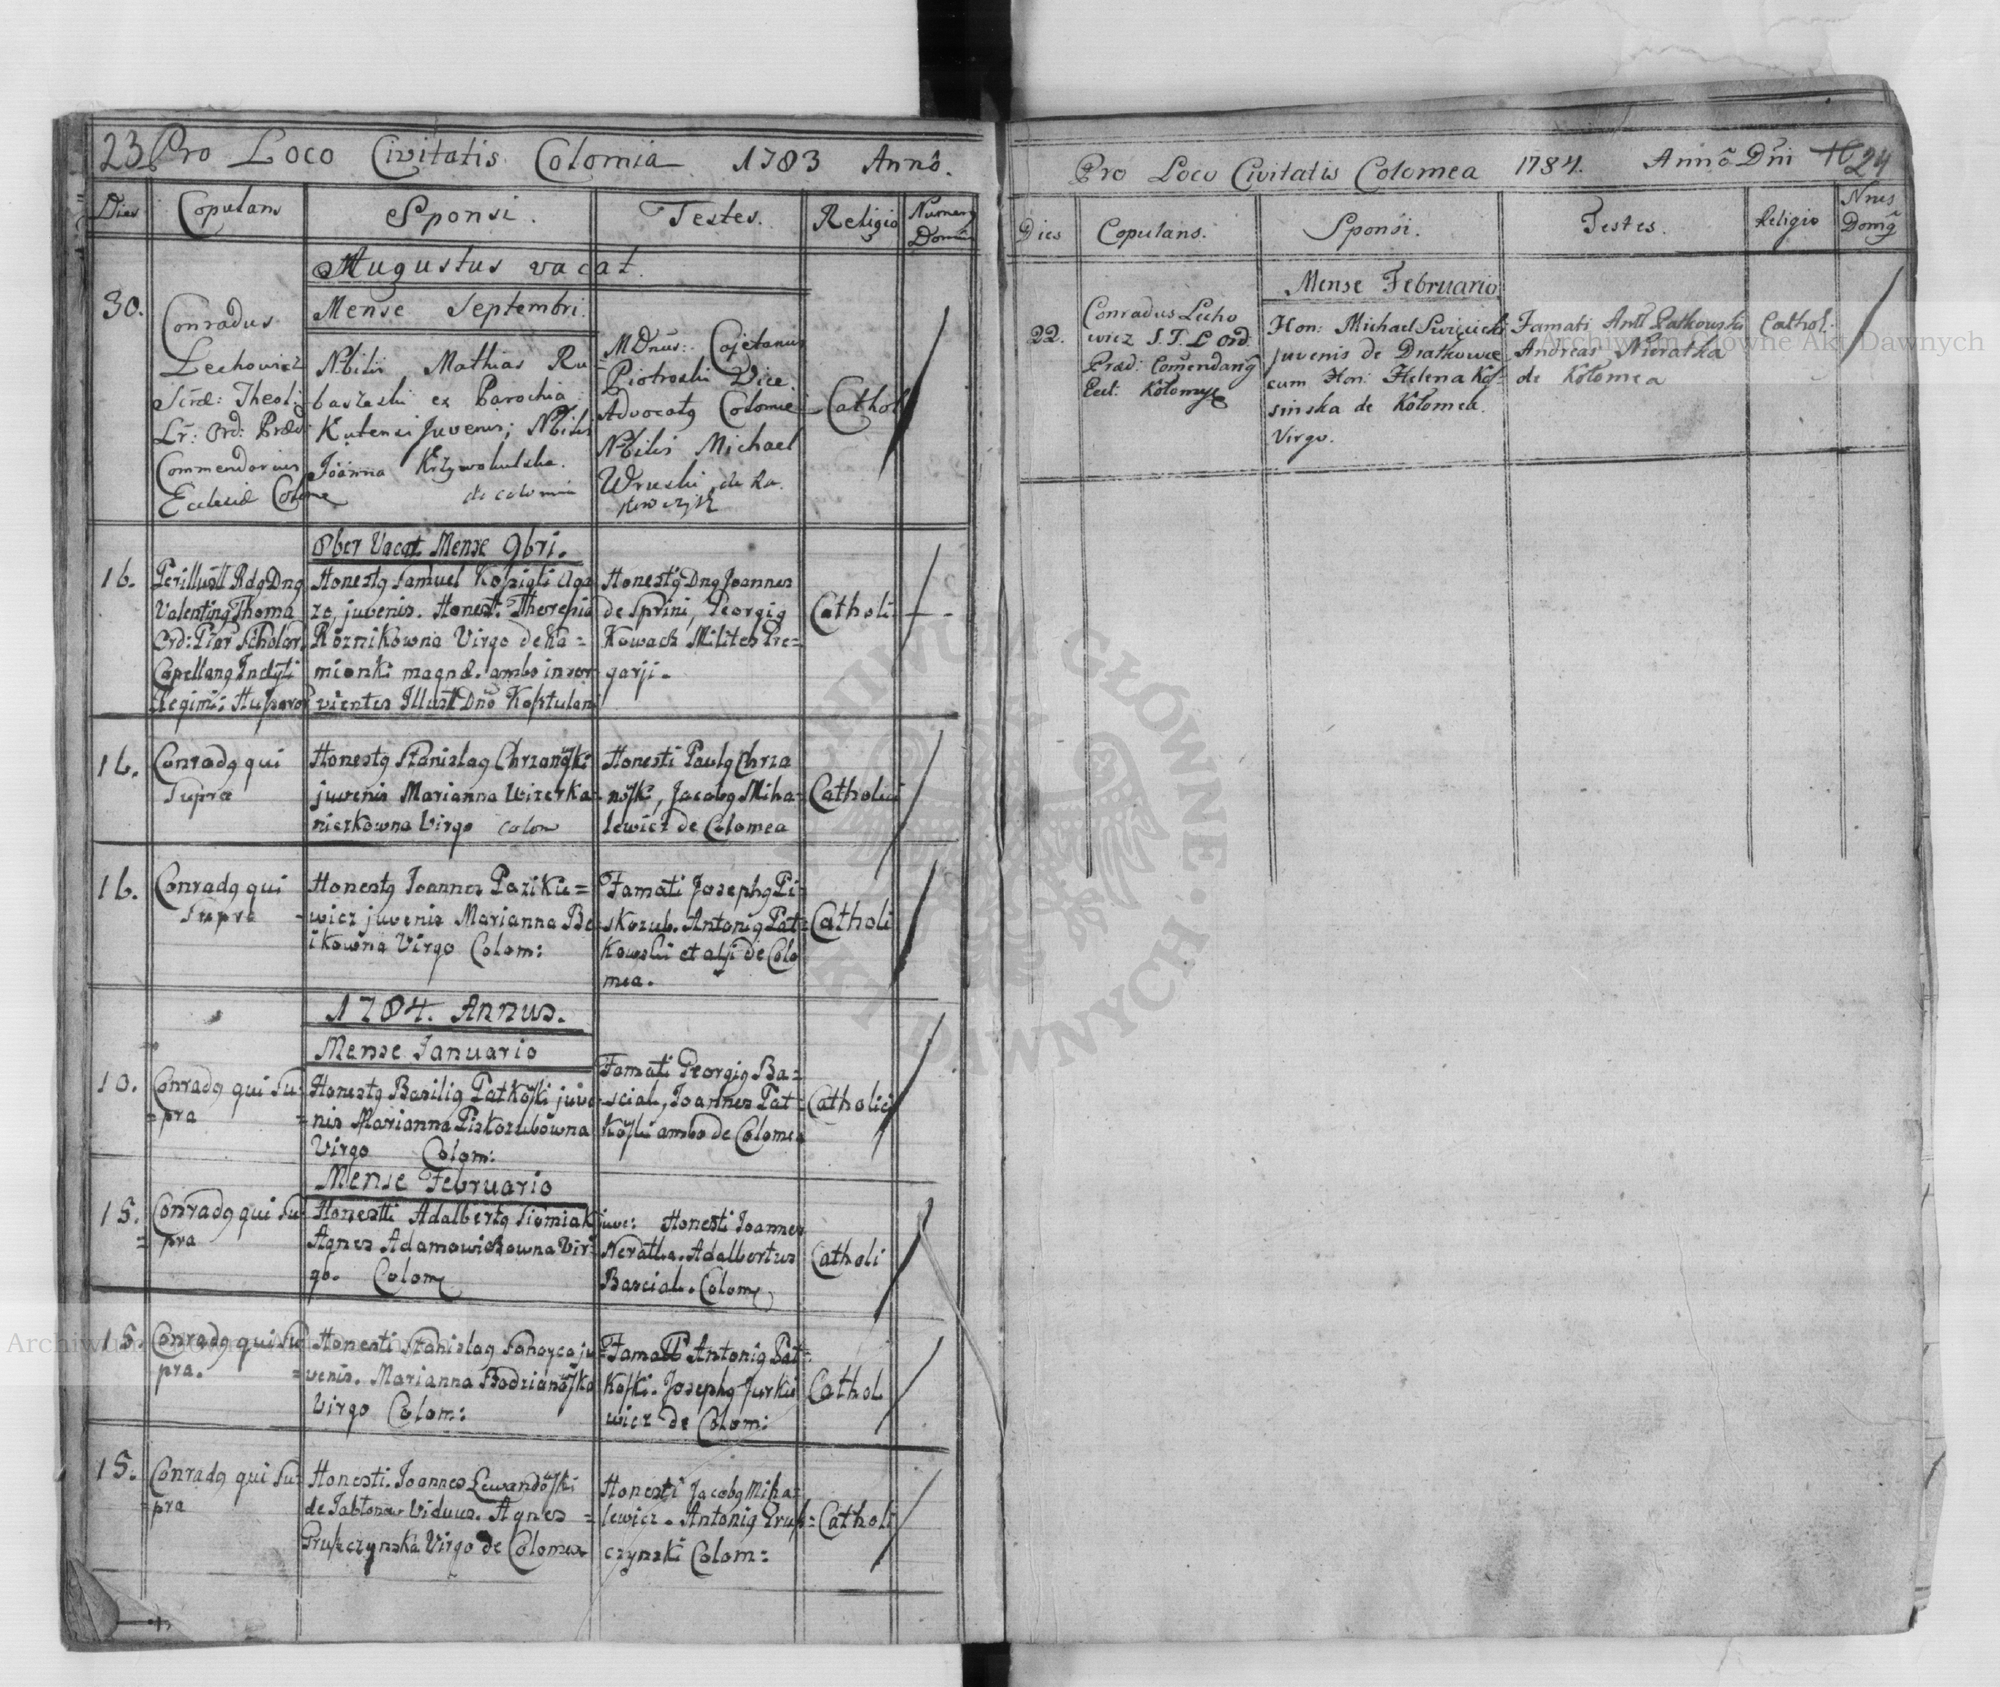 23 Pro Loco Civitatis Colomia 1783 Anno.
Dies
Copulans
Sponsi.
Testes.
Religio
Numerg
Domus
Augustus vacat.
Mense Septembri.
30.
Conradus
Lechowicz
Scrae: Theol:
Lr: Ord: Praed:
Commendarius
Ecclesiae Colome
Nbilis Mathias Ru
baszeski ex Parochia
Kutensi Juvenis; Nbilis
Joanna Krzywokulska.
de colomia
MDnus: Cajetanus
Piotroski Vice
Advocatg Colomie
Nbilis Michael
Wruski de
Cathol
8ber Vacat Mense 9bri.
16.
Perillust Rdg Dng
Valenting Thoma
Ord: Piar Scholar
Capellang Indyti
Regim: Huss
Honestg Samuel Kossigli aga
ze, juvenis. Honest. Theresia
Roznikowna Virgo de Ka=
mionki magnae. ambo inser
vientes Illust Dno Kosztulani
Honestg Dng Joannes
de Sprini, Georgig
Kowach Milites Gre=
garji.
Catholi
16.
Conradg qui
Supra
Honestg Stanislag Chrzanoski
juvenis Marianna Wizerka=
niezkowna Virgo Colom
Honesti Paulg Chrza
noski, Jacobg Miha=
lewicz de Colomea
Catholici
16.
Conradg qui
Supra
Honestg Joannes Paziku=
wicz juvenis Marianna Be
ikowna Virgo Colom:
Famati Josephg Pi=
skozub. Antonig Pat=
kowski et alji de Colo
mea.
Catholi
1784. Annus.
Mense Ianuario
10.
Conradg qui Su=
=pra
Honestg Basilig Patkoski juve=
nis Marianna Piskozubowna
Virgo Colom:
Famati Georgig Ba=
scial, Joannes Pat=
koski ambo de Colomea
Catholici
Mense Februario
15.
Conradg qui Su=
pra
Honestti Adalbertg Siomiak juve:
Agnes Adamowiczowna Vir=
go. Colom
Honesti Joannes
Neratka. Adalbertus
Bascial. Colom
Catholi
15.
Conradg qui Su
pra.
Honesti Stanislag Sahayca ju=
venis. Marianna Bodzianoska
Virgo Colom:
Famati Antonig Pat=
koski. Josephg Jurki
wicz de Colom:
Cathol
15.
Conradg qui Su=
=pra
Honesti. Joannes Lewandoski
de Jablonow Viduus. Agnes =
Pruszczynska Virgo de Colomea
Honesti Jacobg Miha=
lewicz. Antonig Prus=
czynski Colom:
Catholi
Pro Loco Civitatis Colomea 1784. Anno Dni 24
Dies
Copulans.
Sponsi.
Testes.
Religio
Nrus
Domg
Mense Februario
22.
Conradus Lecho
wicz S. T. L Ord.
Praed: Comendarig
Eccl: Kolomye
Hon: Michael Swięcicki
juvenis de Diatkowce
cum Hon: Helena Kos=
sinska de Kolomea.
Virgo.
Famati Ant Patkowski
Andreas Nieratka
de Kolomea
Cathol:
Archiwum Główne Akt Dawnych
ARCHIWUM GŁÓWNE AKT DAWNYCH
Archiwum Główne Akt Dawnych